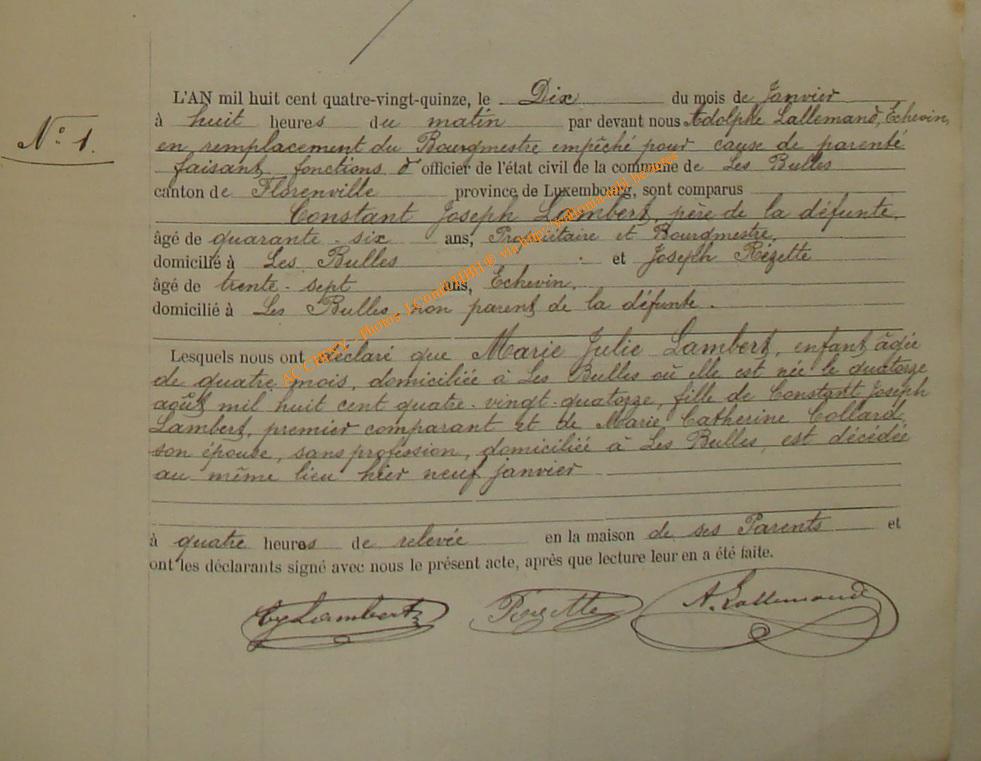 L'AN mil huit cent quatre-vingt-quinze, le Dix du mois de Janvier
N° 1. à huit heures du matin par devant nous Adolphe Lallemand, Echevin,
en remplacement du Bourgmestre empêché pour cause de parenté
faisant fonctions d'officier de l'état civil de la commune de Les Bulles
canton de Florenville province de Luxembourg, sont comparus
Constant Joseph Lambert, père de la défunte,
âgé de quarante-six ans, Propriétaire et Bourgmestre,
domicilié à Les Bulles et Joseph Rézette
âgé de trente-sept ans, Echevin,
domicilié à Les Bulles, non parent de la défunte.
Lesquels nous ont déclaré que Marie Julie Lambert, enfant âgée
de quatre mois, domiciliée à Les Bulles où elle est née le quatorze
août mil huit cent quatre-vingt-quatorze, fille de Constant Joseph
Lambert, premier comparant et de Marie Catherine Collard,
son épouse, sans profession, domiciliée à Les Bulles, est décédée
au même lieu hier neuf janvier
à quatre heures de relevée en la maison de ses Parents et
ont les déclarants signé avec nous le présent acte, après que lecture leur en a été faite.
Lambert Rézette A. Lallemand